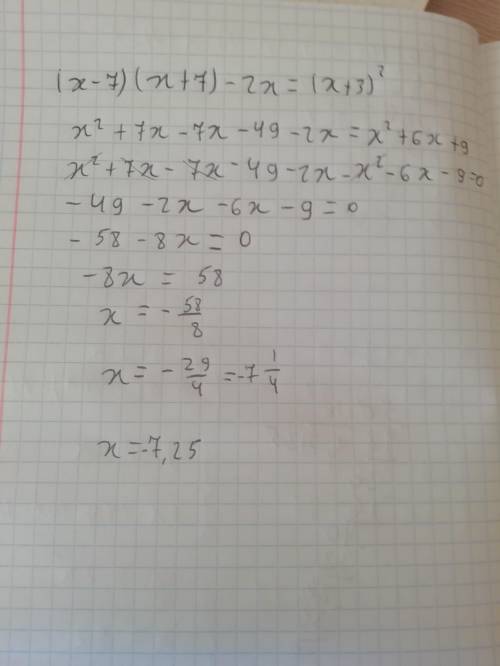 (x-7)(x+7)-2x=(x+3)²
x²+7x-7x-49-2x=x²+6x+9
x²+7x-7x-49-2x-x²-6x-9=0
-49-2x-6x-9=0
-58-8x=0
-8x=58
x=-58/8
x=-29/4=-7 1/4
x=-7,25